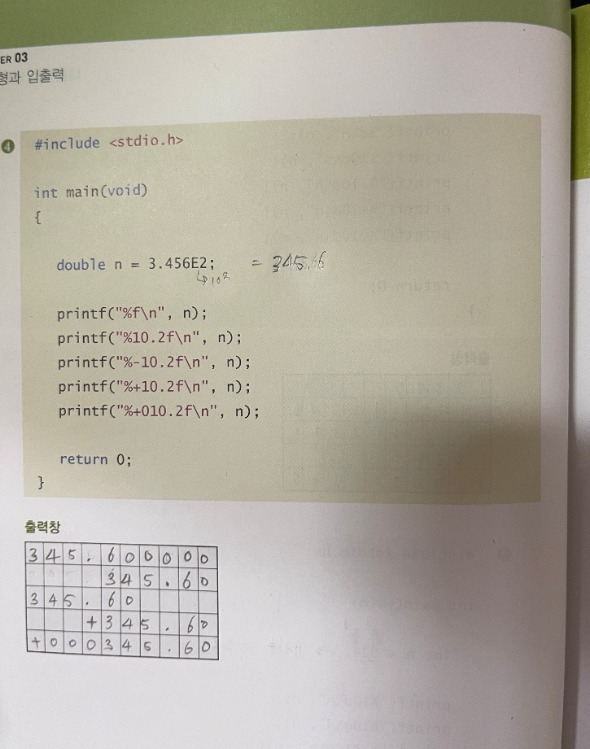 ER 03
형과 입출력
4
#include <stdio.h>
int main(void)
{
double n = 3.456E2; = 345.6
↳10²
printf("%f\n", n);
printf("%10.2f\n", n);
printf("%-10.2f\n", n);
printf("%+10.2f\n", n);
printf("%+010.2f\n", n);
return 0;
}
출력창
345.600000
345.60
345.60
+345.60
+000345.60